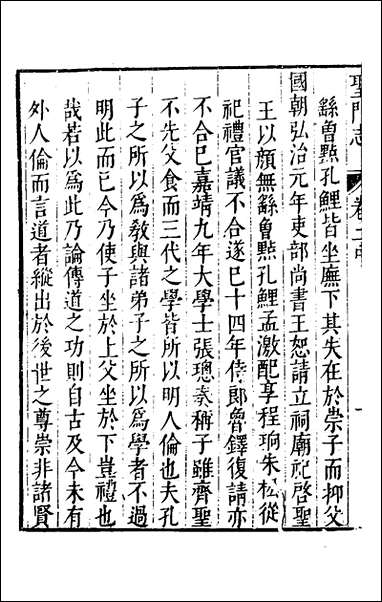 聖門志 卷二中
繇曾㸃孔鯉皆坐廡下其失在於崇子而抑父
國朝弘治元年吏部尚書王恕請立祠廟祀啓聖
王以顔無繇曾㸃孔鯉孟激配享程珦朱松從
祀禮官議不合遂已十四年侍郎魯鐸復請亦
不合已嘉靖九年大學士張璁奏稱子雖齊聖
不先父食而三代之學皆所以明人倫也夫孔
子之所以爲教與諸弟子之所以爲學者不過
明此而已今乃使子坐於上父坐於下豈禮也
哉若以爲此乃論傳道之功則自古及今未有
外人倫而言道者縱出於後世之尊崇非諸賢